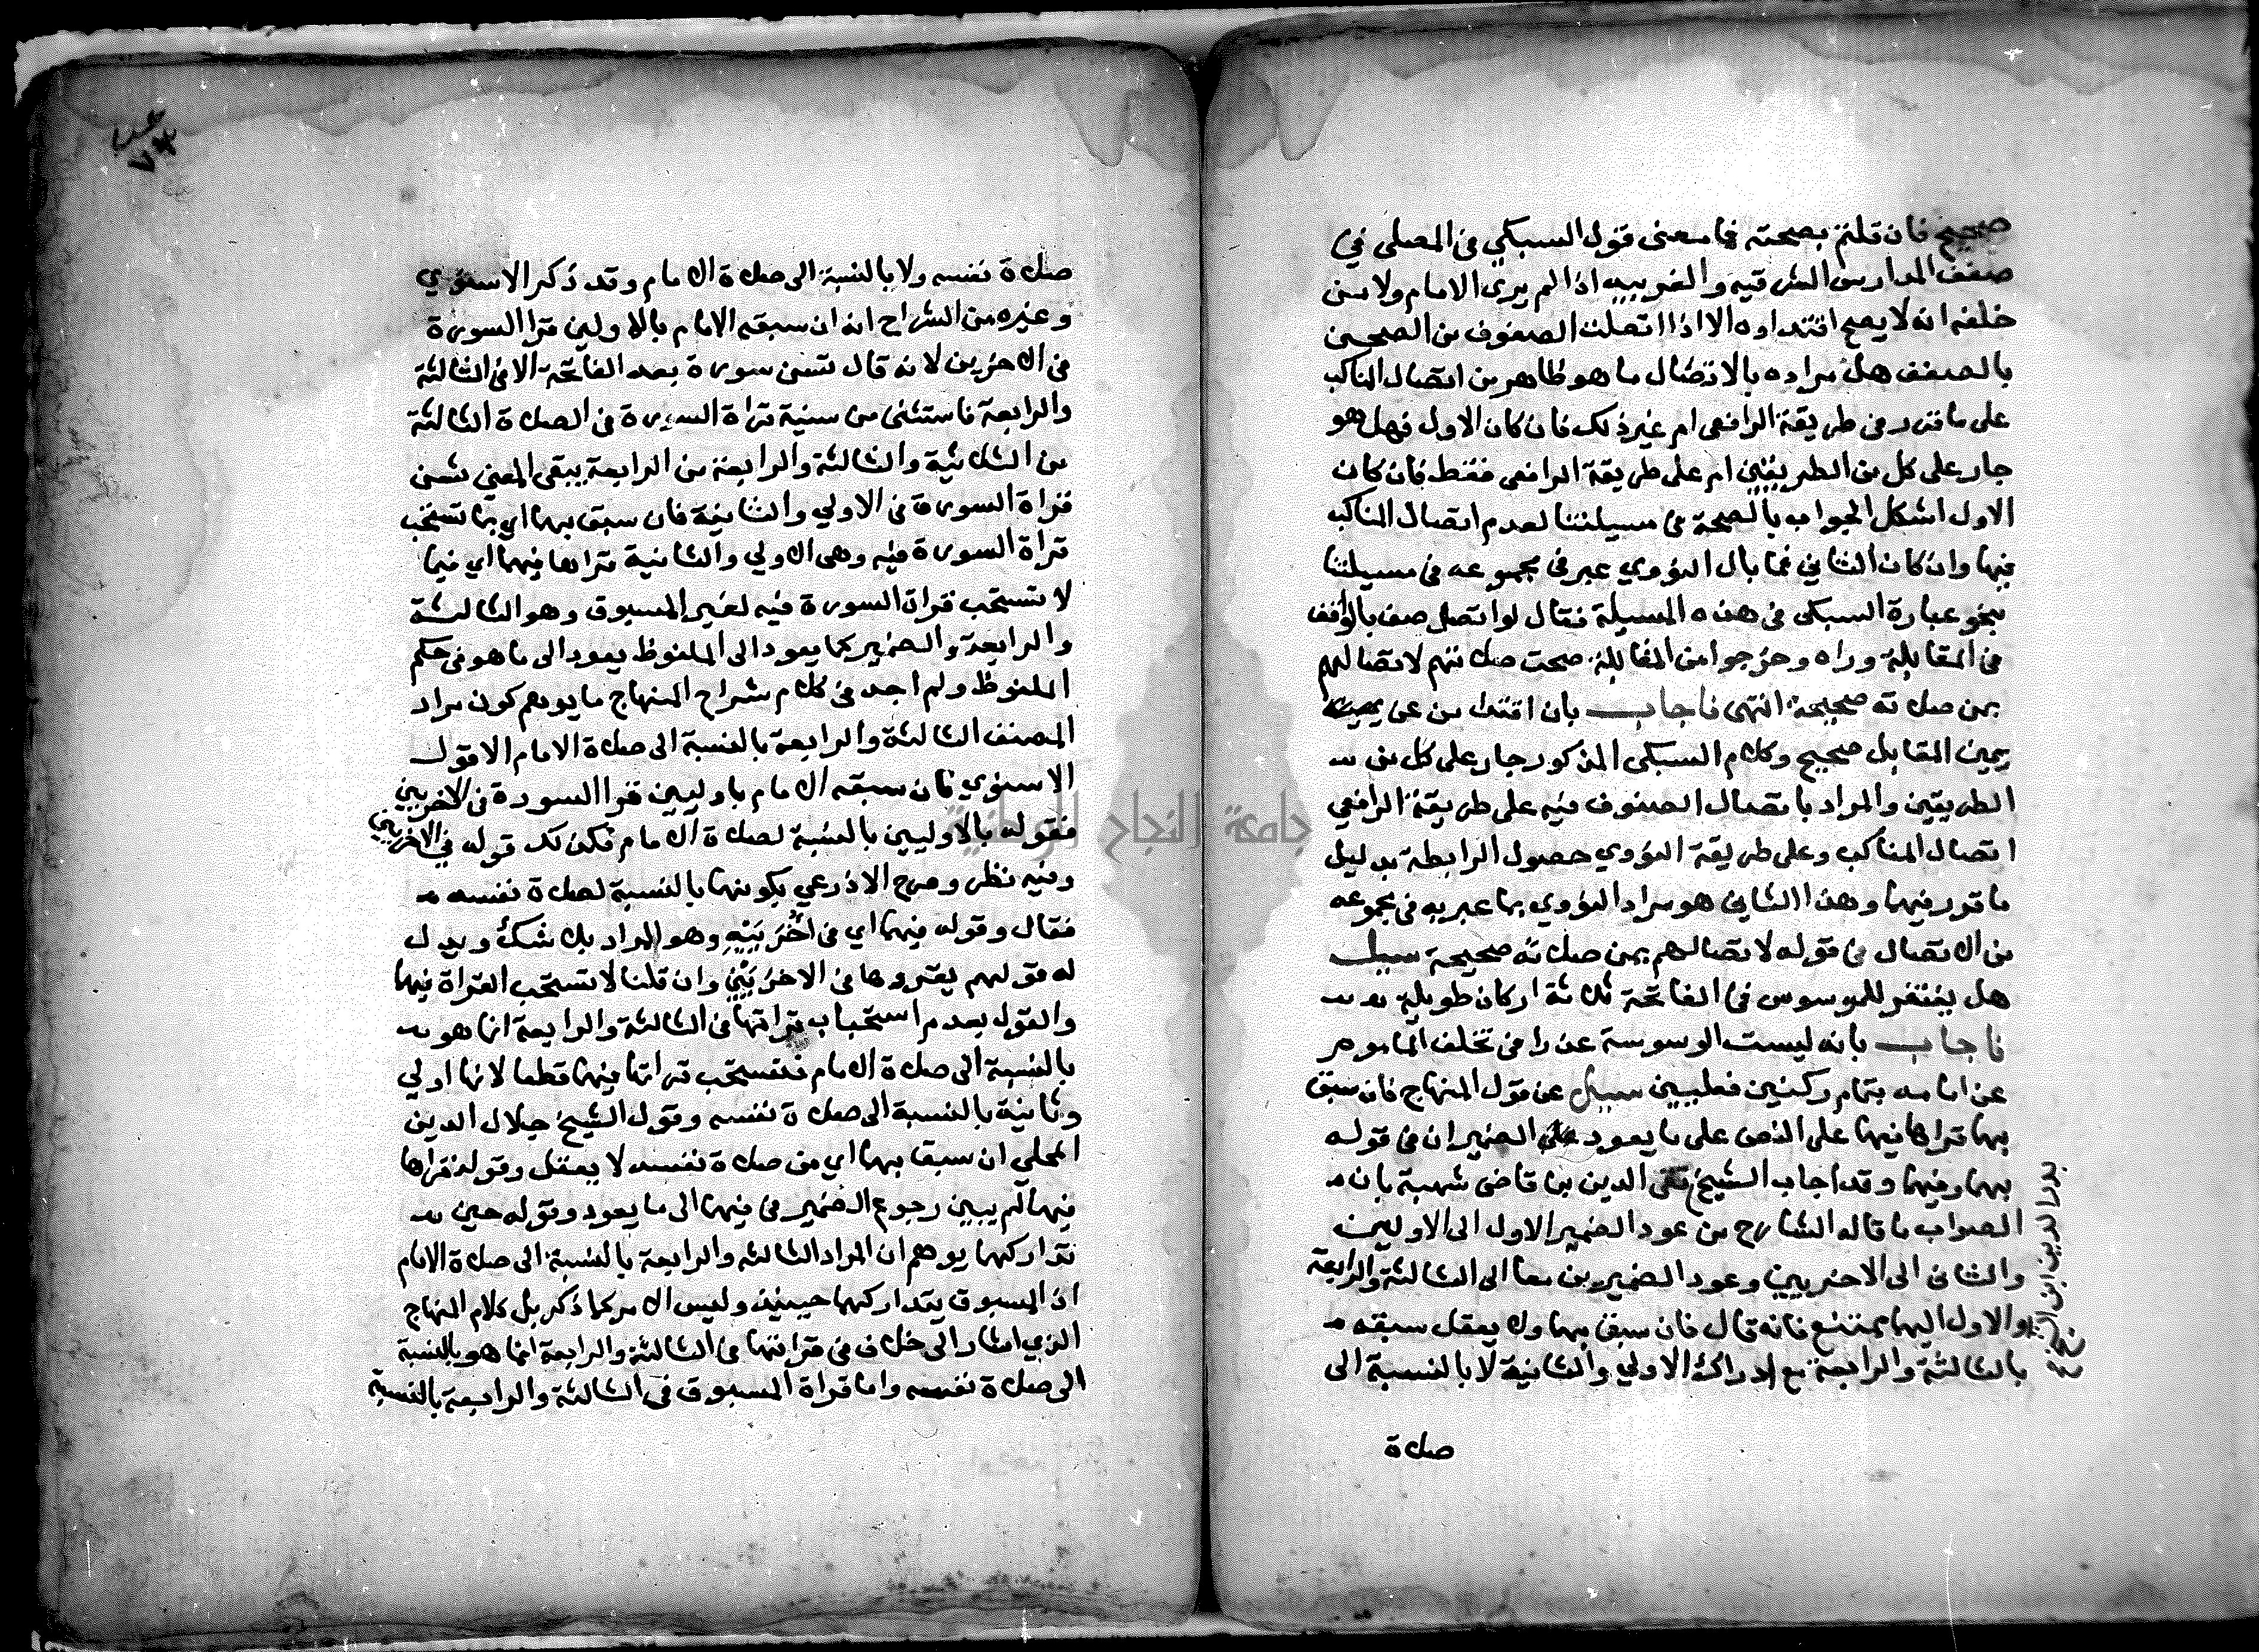 صحيح فان قلتم بصحته فما معنى قول السبكي في المصلى في
صفف المدارس الشرقيه والغربيه اذا لم يرى الامام ولا من
خلفه انه لا يصح اقتداوه الا اذا اتصلت الصفوف من الصحن
بالصفف هل مراده بالاتصال ما هو ظاهر من اتصال المناكب
على ما قرر في طريقة الرافعى ام غير ذلك فان كان الاول فهل هو
جار على كل من الطريقين ام على طريقة الرافعى فقط فان كان
الاول اشكل الجواب بالصحة في مسيلتنا لعدم اتصال المناكب
فيها وان كان الثاني فما بال النووي عبر في مجموعه في مسيلتنا
بنحو عبارة السبكى في هذه المسيلة فقال لو اتصل صف بالواقف
في المقابلة وراه وخرجوا من المقابلة صحت صلاتهم لاتصالهم
بمن صلاته صحيحة انتهى فاجاب بان اقتدا من عن يمينه
يمين المقابل صحيح وكلام السبكى المذكور جار على كل من
الطريقين والمراد باتصال الصفوف فيه على طريقة الرافعي
اتصال المناكب وعلى طريقة النووي حصول الرابطة بدليل
ما قرر فيها وهذا الثاني هو مراد النووي بما عبر به في مجموعه
من الاتصال في قوله لاتصالهم بمن صلاته صحيحة سيل
هل يغتفر للموسوس في الفاتحة ثلاثة اركان طويلة
فاجاب بانه ليست الوسوسة عذرا في تخلف الماموم
عن امامه بتمام ركنين فعليين سيل عن قول المنهاج فان سبق
بهما قراها فيهما على النص على ما يعود الضميران في قوله
بهما وفيهما وقد اجاب الشيخ تقى الدين بن قاضى شهبة بان
الصواب ما قاله الشارح من عود الضمير الاول الى الاوليين
والثانى الى الاخريين وعود الضميرين معا الى الثالثة والرابعة
والاول اليهما ممتنع فانه قال فان سبق بهما ولا يعقل سبقه
بالثالثة والرابعة مع ادراك الاولي والثانية لا بالنسبة الى
صلاة
بدر الدين ابن
صلاة نفسه ولا بالنسبة الى صلاة الامام وقد ذكر الاسنوي
وغيره من الشراح انه ان سبقه الامام بالاولين قرا السورة
في الاخرين لانه قال تسن سورة بعد الفاتحة الا في الثالثة
والرابعة فاستثنى من سنية قراة السورة في الصلاة الثالثة
من الثلاثية والثالثة والرابعة من الرابعة يبقى المعنى تسن
قراة السورة في الاولي والثانية فان سبق بهما اي بما تستحب
قراة السورة فيه وهى الاولي والثانية قراها فيهما اي فيما
لا تستحب قراة السورة فيه لغير المسبوق وهو الثالثة
والرابعة والضمير كما يعود الى الملفوظ يعود الى ما هو في حكم
الملفوظ ولم اجد في كلام شراح المنهاج ما يوهم كون مراد
المصنف الثالثة والرابعة بالنسبة الى صلاة الامام الا قول
الاسنوي فان سبقه الامام باوليين قرا السورة في الاخريين
فقوله بالاوليين بالنسبة لصلاة الامام فكذلك قوله في الاخريين
وفيه نظر وصرح الاذرعي بكونهما بالنسبة لصلاة نفسه
فقال وقوله فيهما اي في اخريَيْه وهو المراد بلا شك ويدل
له قولهم يقرؤها في الاخريين وان قلنا لا تستحب القراة فيهما
والقول بعدم استحباب قراتها في الثالثة والرابعة انما هو
بالنسبة الى صلاة الامام فتستحب قراتها فيهما قطعا لانها اولي
وثانية بالنسبة الى صلاة نفسه وقول الشيخ جلال الدين
المحلى ان سبقا بهما اي من صلاة نفسه لا يعقل وقوله قراها
فيهما لم يبين رجوع الضمير في فيهما الى ما يعود وقوله حين
تداركهما يوهم ان المراد الثالثه والرابعة بالنسبة الى صلاة الامام
اذ المسبوق يتداركهما حينيذ وليس الامر كما ذكر بل كلام المنهاج
الذي اشار الى خلاف في قراتها في الثالثة والرابعة انما هو بالنسبة
الى صلاة نفسه واما قراة المسبوق في الثالثة والرابعة بالنسبة
جامعة النجاح الوطنية